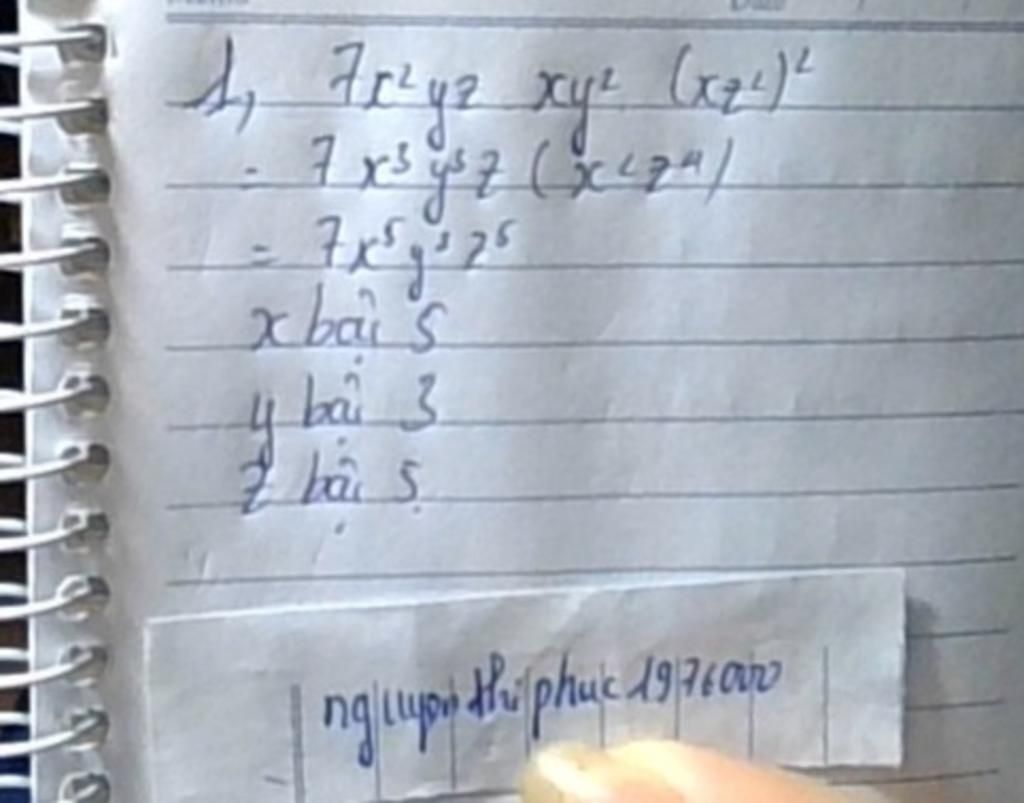 1, 7x²yz xy² (xz²)²
= 7x³y³z (x²z⁴)
= 7x⁵y³z⁵
x bậc 5
y bậc 3
z bậc 5
nguyen thi phuc 1976000